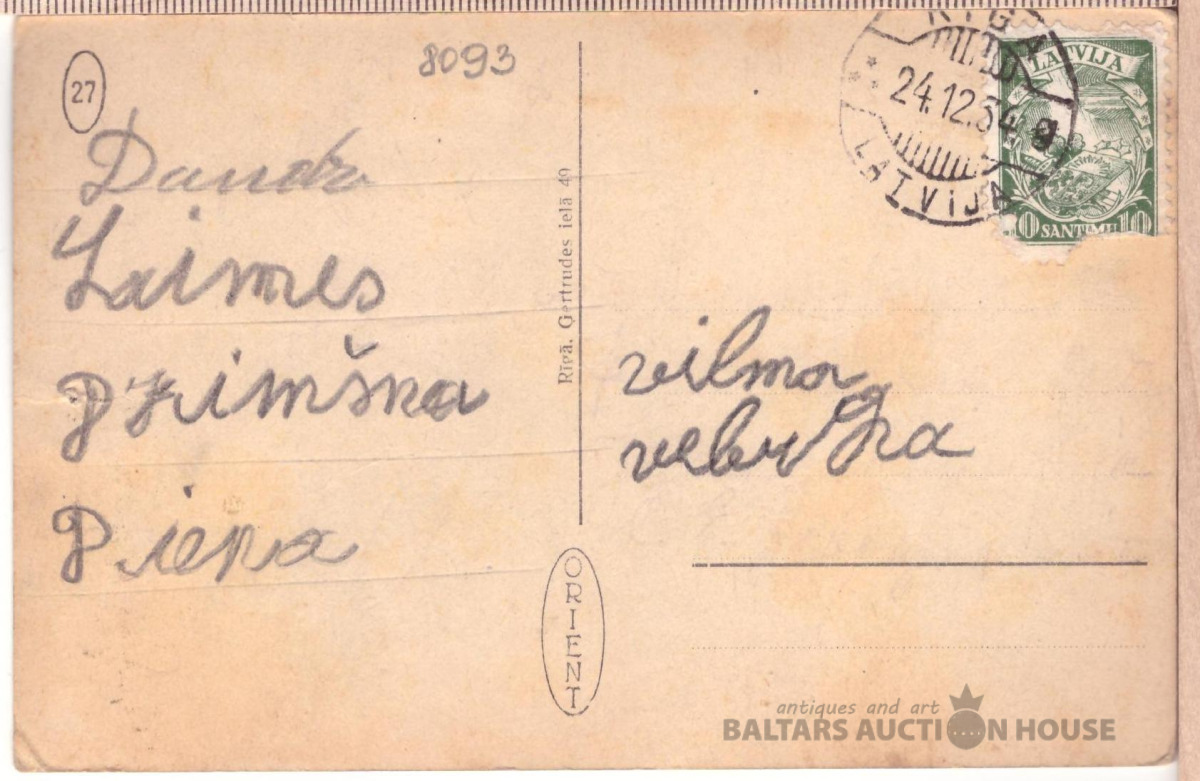 27
8093
Daudz
Laimes
Dzimšna
Diena
Rīgā, Ģertrudes ielā 49
ORIENT
RIGA
24.12.34
LATVIJA
LATVIJA
10 SANTIMU 10
vilma
antiques and art
BALTARS AUCTION HOUSE